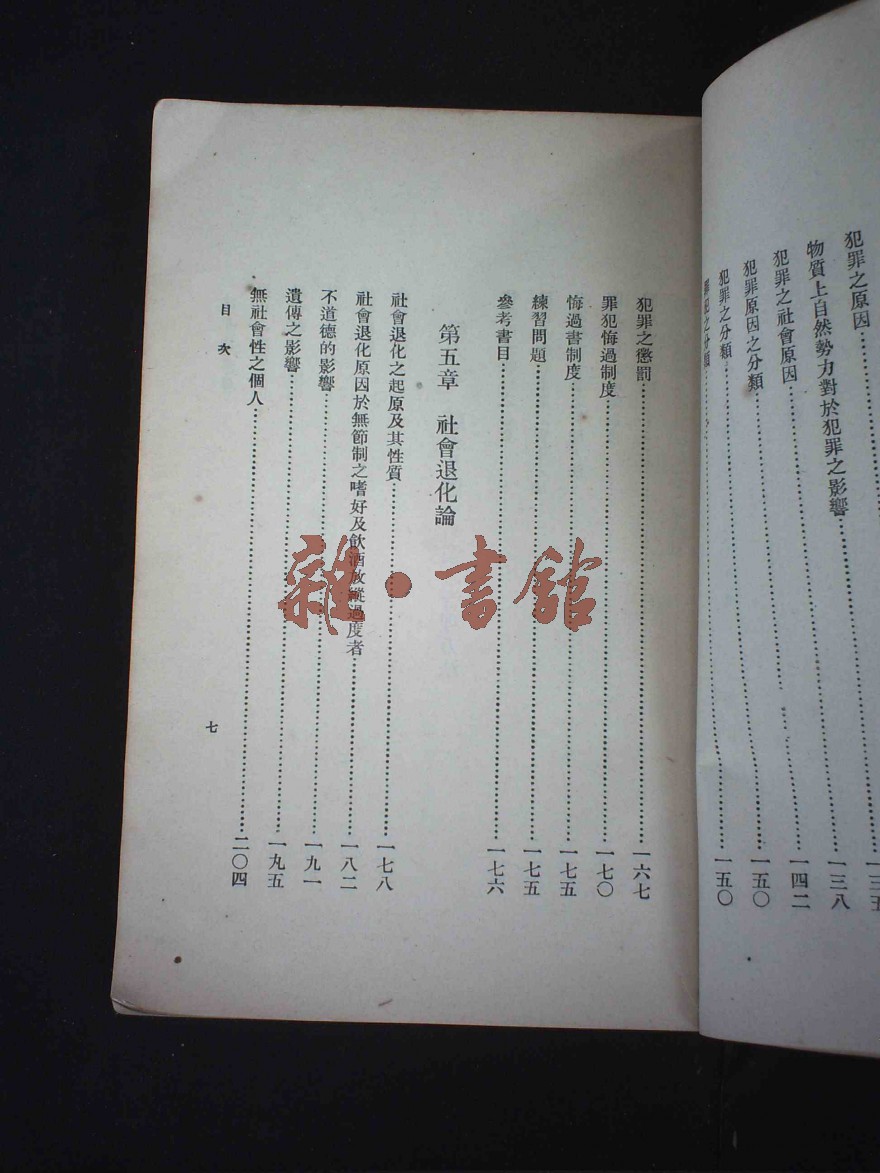 犯罪之原因……一三五
物質上自然勢力對於犯罪之影響……一三八
犯罪之社會原因……一四二
犯罪原因之分類……一五〇
犯罪之分類……一五〇
犯罪之懲罰……一六七
罪犯悔過制度……一七〇
悔過書制度……一七五
練習問題……一七五
參考書目……一七六
第五章 社會退化論
社會退化之起原及其性質……一七八
社會退化原因於無節制之嗜好及飲酒放縱過度者……一八二
不道德的影響……一九一
遺傳之影響……一九五
無社會性之個人……二〇四
目次
七
雜·書館